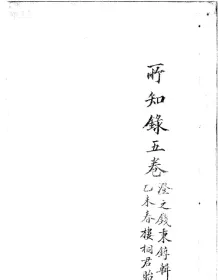 所知錄五卷
澄之錢秉鐙輯
乙未春樓桐君貽